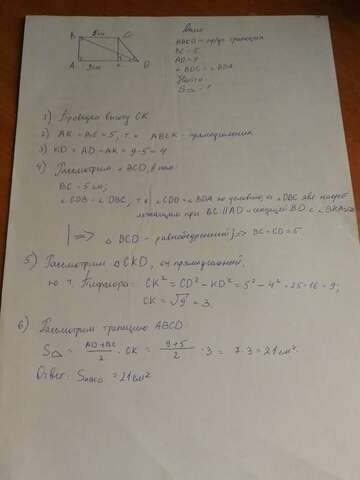 B 5см C
A 9см K D
Дано:
ABCD - прур трапеция
BC = 5
AD = 9
∠BDC = ∠BDA
Найти:
S
1) Проведем высоту CK
2) AK = BC = 5, т.к ABCK - прямоугольник
3) KD = AD - AK = 9 - 5 = 4
4) Рассмотрим △BCD, в нем:
BC = 5 см;
∠CDB = ∠DBC, т.к ∠CDB = ∠BDA по условию, а ∠DBC
при BC || AD и секущей BD с
=> △BCD - равнобедренный => BC = CD = 5
5) Рассмотрим △CKD, он прямоугольный,
по т. Пифагора: CK² = CD² - KD² = 5² - 4² = 25 - 16 = 9;
CK = √9 = 3
6) Рассмотрим трапецию ABCD:
S = AD+BC/2 · CK = 9+5/2 · 3 = 7·3 = 21 см²
Ответ: SABCD = 21 см²